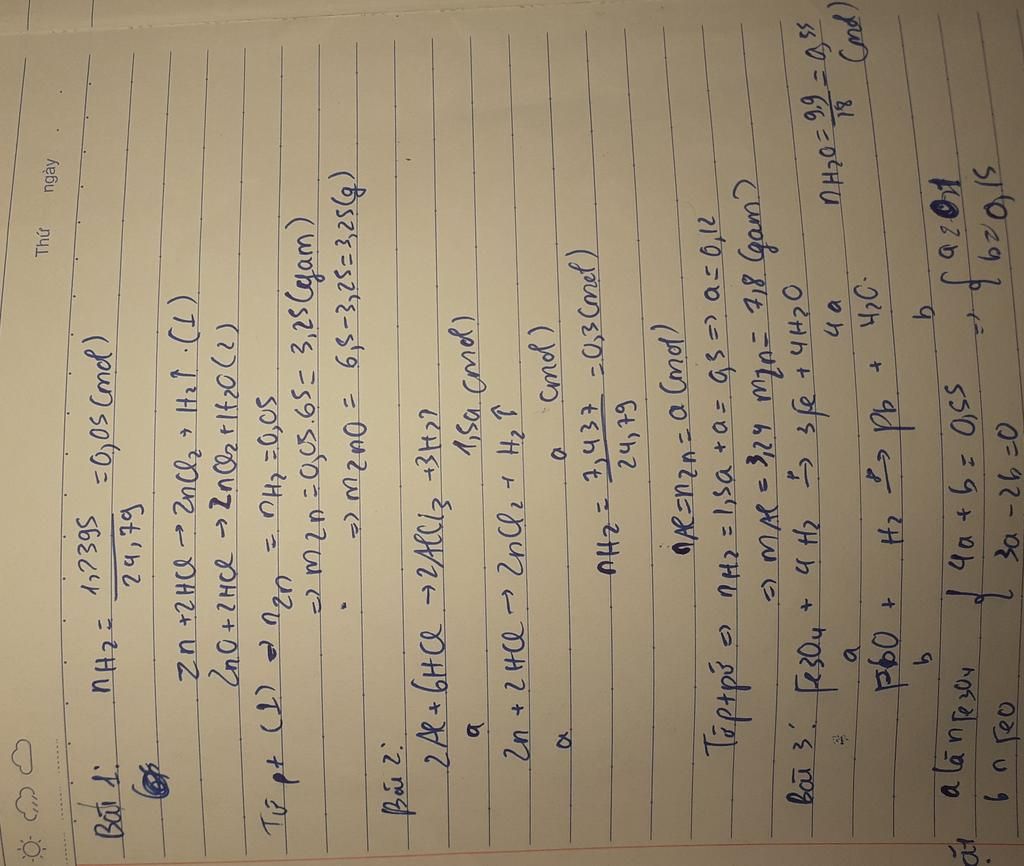 Thứ ngày
Bài 1:
nH2 = 1,2395 / 24,79 = 0,05 (mol)
Zn + 2HCl → ZnCl2 + H2↑ (1)
ZnO + 2HCl → ZnCl2 + H2O (2)
Từ pt (1) ⇒ nZn = nH2 = 0,05
⇒ mZn = 0,05.65 = 3,25 (gam)
⇒ mZnO = 6,5 - 3,25 = 3,25 (g)
Bài 2:
2Al + 6HCl → 2AlCl3 + 3H2
a 1,5a (mol)
Zn + 2HCl → ZnCl2 + H2↑
a a (mol)
nH2 = 7,437 / 24,79 = 0,3 (mol)
nAl = nZn = a (mol)
Từ ptpứ ⇒ nH2 = 1,5a + a = 0,3 ⇒ a = 0,12
⇒ mAl = 3,24 mZn = 7,8 (gam)
Bài 3: Fe3O4 + 4H2 → 3Fe + 4H2O nH2O = 9,9 / 18 = 0,55 (mol)
a 4a
PbO + H2 → Pb + H2O
b b
a là nFe3O4 { 4a + b = 0,55 ⇒ { a = 0,1
b n FeO { 3a - 2b = 0 b = 0,15